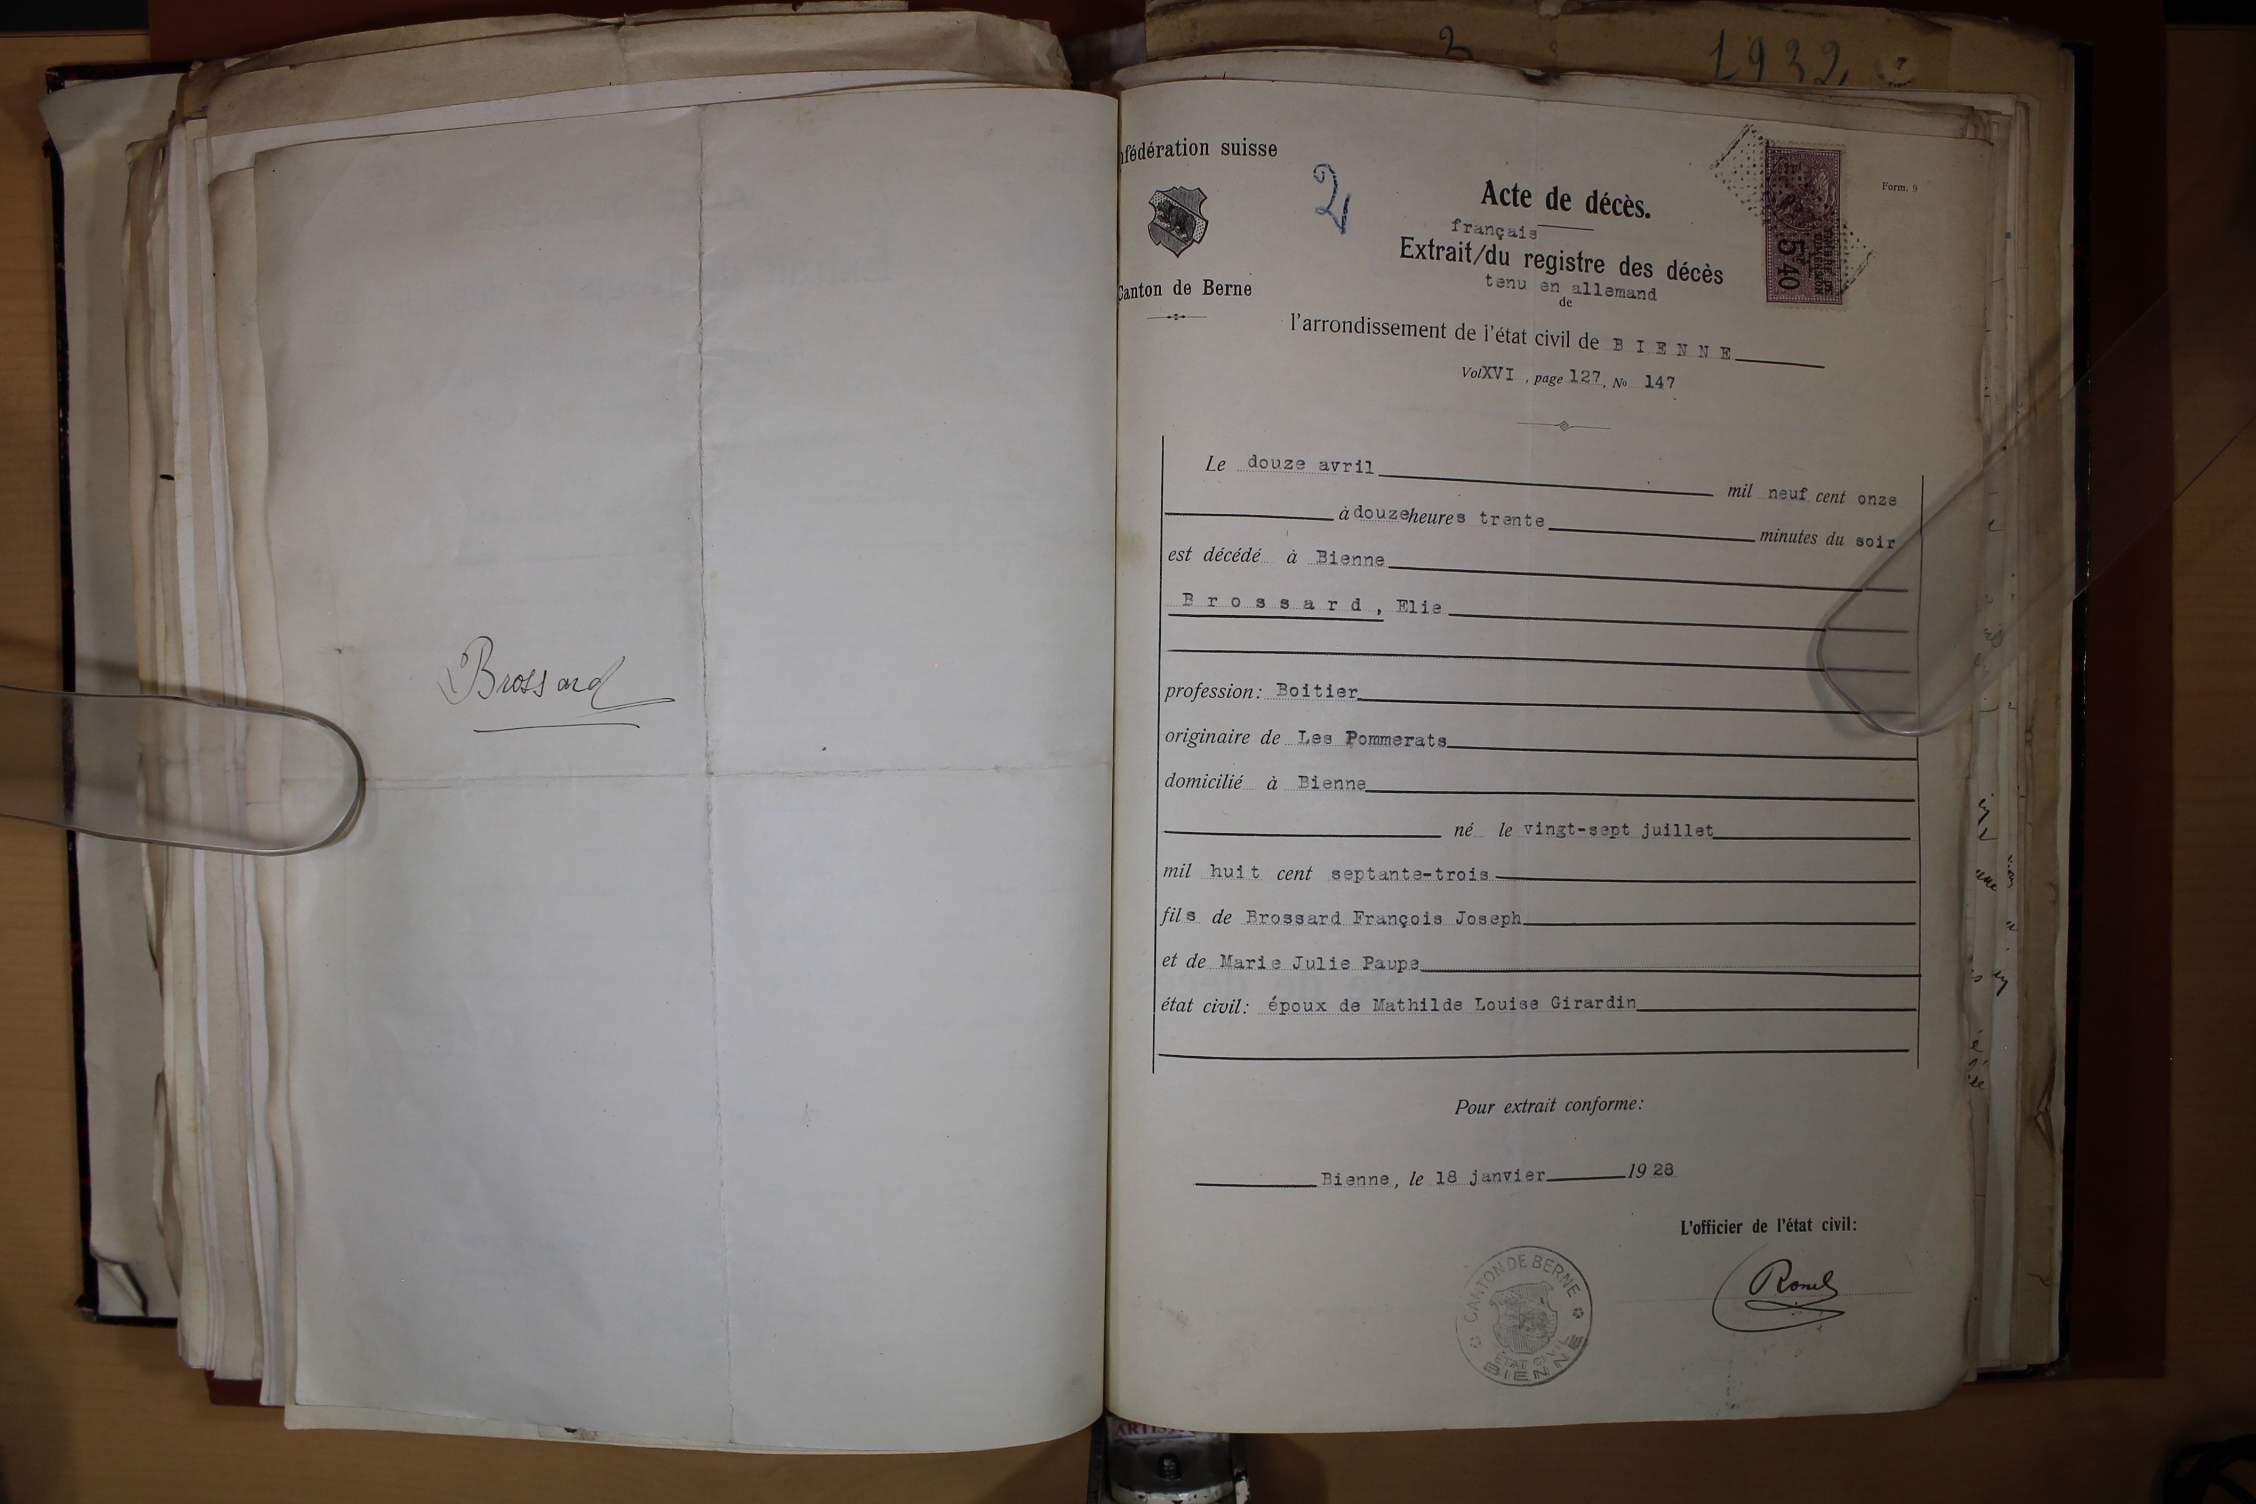 Brossard
1932
2
Confédération suisse
Canton de Berne
2
Form. 9
Acte de décès.
français
Extrait/du registre des décès
tenu en allemand
de
l'arrondissement de l'état civil de BIENNE
Vol XVI, page 127, No 147
5F40
Le douze avril mil neuf cent onze
à douze heures trente minutes du soir
est décédé à Bienne
Brossard, Elie
profession: Boitier
originaire de Les Pommerats
domicilié à Bienne
né le vingt-sept juillet
mil huit cent septante-trois
fils de Brossard François Joseph
et de Marie Julie Paupe
état civil: époux de Mathilde Louise Girardin
Pour extrait conforme:
Bienne, le 18 janvier 1928
L'officier de l'état civil:
CANTON DE BERNE
ETAT CIVIL
BIENNE